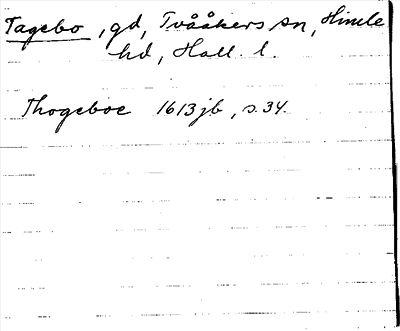 Tagebo, gd, Tvååkers sn, Himle
hd, Hall. l.
Thogeboe 1613 jb, s. 34.